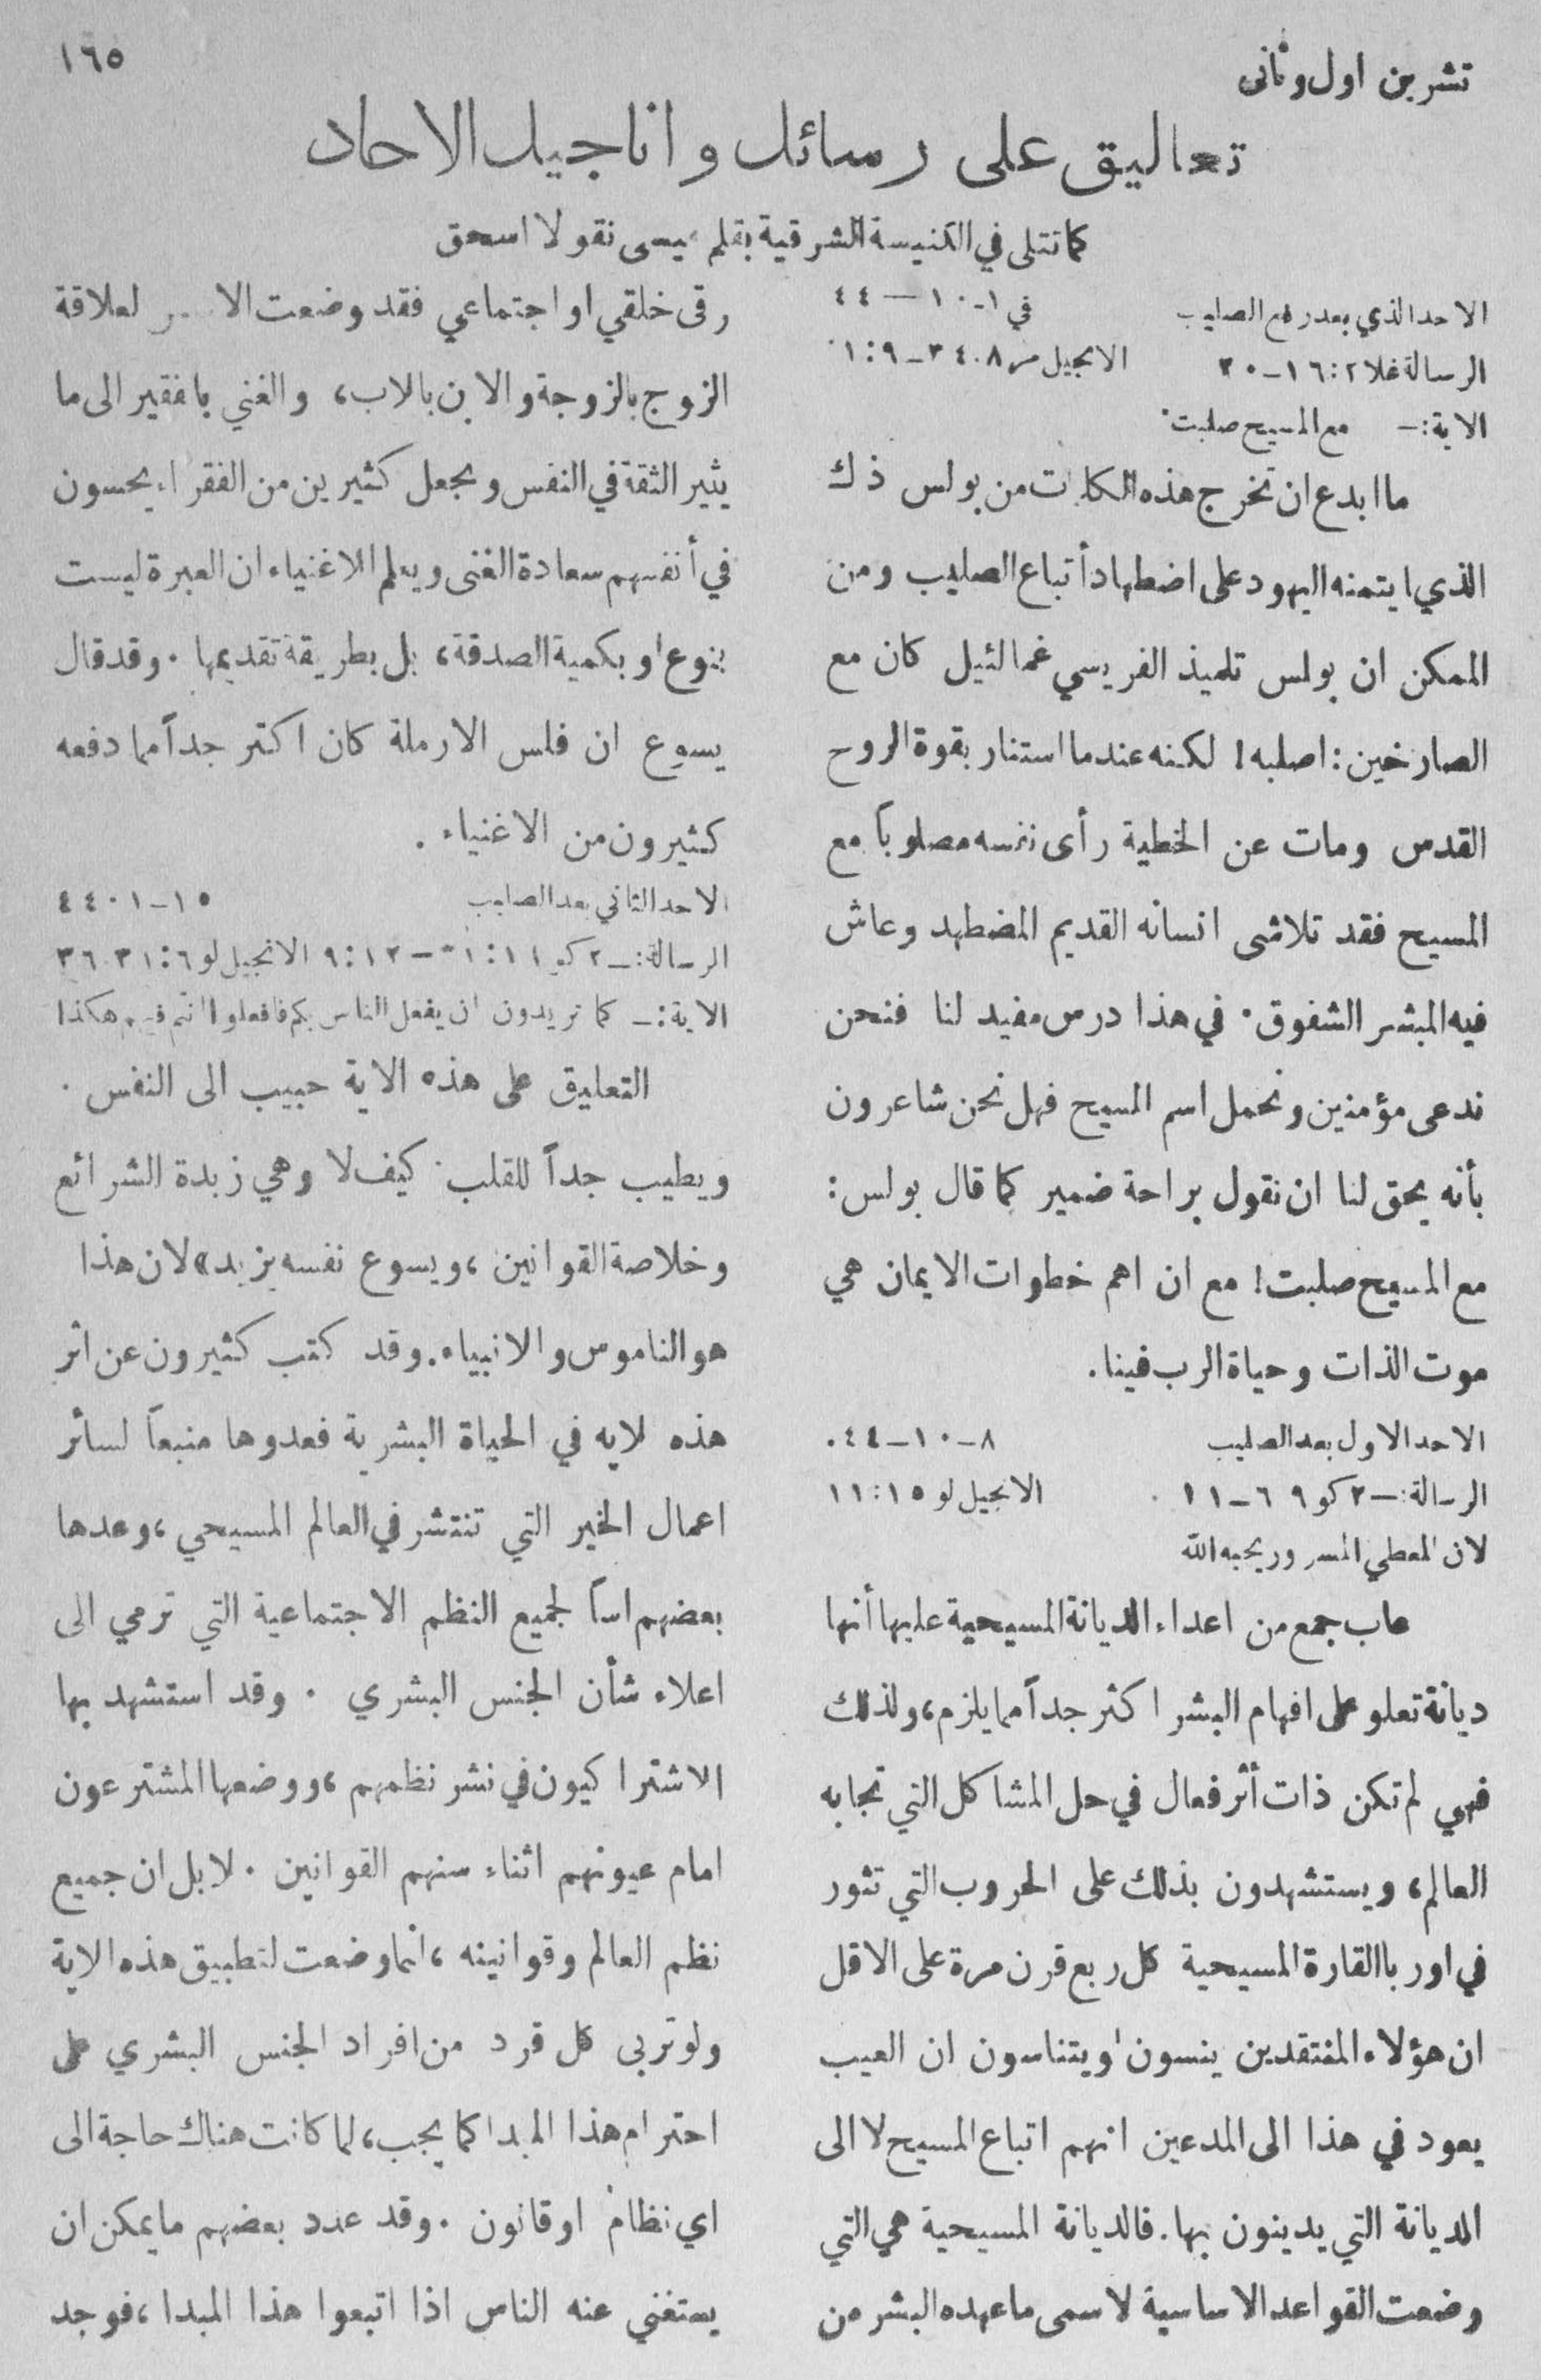 ١٦٥
تشرين اول وثاني
تعاليق على رسائل واناجيل الاحاد
كما تتلى في الكنيسة الشرقية بقلم عيسى نقولا اسحق
الاحد الذي بعد رفع الصليب في ١-١٠-٤٤
الرسالة غلا ١٦:٢-٢٠ الانجيل مر ٣٤:٨-١:٩
الاية:- مع المسيح صلبت.
ما ابدع ان تخرج هذه الكلمات من بولس ذاك
الذي ايتمنه اليهود على اضطهاد أتباع الصليب ومن
الممكن ان بولس تلميذ الفريسي غمالئيل كان مع
الصارخين: اصلبه! لكنه عندما استنار بقوة الروح
القدس ومات عن الخطية رأى نفسه مصلوباً مع
المسيح فقد تلاشى انسانه القديم المضطهد وعاش
فيه المبشر الشفوق. في هذا درس مفيد لنا فنحن
ندعى مؤمنين ونحمل اسم المسيح فهل نحن شاعرون
بأنه يحق لنا ان نقول براحة ضمير كما قال بولس:
مع المسيح صلبت! مع ان اهم خطوات الايمان هي
موت الذات وحياة الرب فينا.
الاحد الاول بعد الصليب ٨-١٠-٤٤.
الرسالة:- ٢ كو ٩ ٦-١١ . الانجيل لو ١١:١٥
لان المعطي المسرور يحبه الله
عاب جمع من اعداء الديانة المسيحية عليها أنها
ديانة تعلو على افهام البشر اكثر جداً مما يلزم، ولذلك
فهي لم تكن ذات أثر فعال في حل المشاكل التي تجابه
العالم، ويستشهدون بذلك على الحروب التي تثور
في اوربا القارة المسيحية كل ربع قرن مرة على الاقل
ان هؤلاء المنتقدين ينسون او يتناسون ان العيب
يعود في هذا الى المدعين انهم اتباع المسيح لا الى
الديانة التي يدينون بها. فالديانة المسيحية هي التي
وضعت القواعد الاساسية لاسمى ما عهده البشر من
رقى خلقي او اجتماعي فقد وضعت لعلاقة
الزوج بالزوجة والابن بالاب، والغني بافقير الى ما
يثير الثقة في النفس ويجعل كثيرين من الفقراء يحسون
في أنفسهم سعادة الغنى ويعلم الاغنياء ان العبرة ليست
بنوع او بكمية الصدقة، بل بطريقة تقديمها. وقد قال
يسوع ان فلس الارملة كان اكثر جداً مما دفعه
كثيرون من الاغنياء.
الاحد الثاني بعد الصليب ١٥-١٠٤٤
الرسالة:- ٢ كو ١١: -٩:١٢ الانجيل لو ٣١:٦ ٣٦
الاية:- كما تريدون ان يفعل الناس بكم فافعلوا انتم هكذا
التعليق على هذه الاية حبيب الى النفس.
ويطيب جداً للقلب. كيف لا وهي زبدة الشرائع
وخلاصة القوانين، ويسوع نفسه يزيد» لان هذا
هو الناموس والانبياء. وقد كتب كثيرون عن اثر
هذه لايه في الحياة البشرية فعدوها منبعاً لسائر
اعمال الخير التي تنتشر في العالم المسيحي، وعدها
بعضهم اساً لجميع النظم الاجتماعية التي ترمي الى
اعلاء شأن الجنس البشري . وقد استشهد بها
الاشتراكيون في نشر نظمهم، ووضعها المشترعون
امام عيونهم اثناء سنهم القوانين. لا بل ان جميع
نظم العالم وقوانينه، انما وضعت لتطبيق هذه الاية
ولو تربى كل فرد من افراد الجنس البشري على
احترام هذا المبدا كما يجب، لما كانت هناك حاجة الى
اي نظام او قانون. وقد عدد بعضهم ما يمكن ان
يستغني عنه الناس اذا اتبعوا هذا المبدا، فوجد